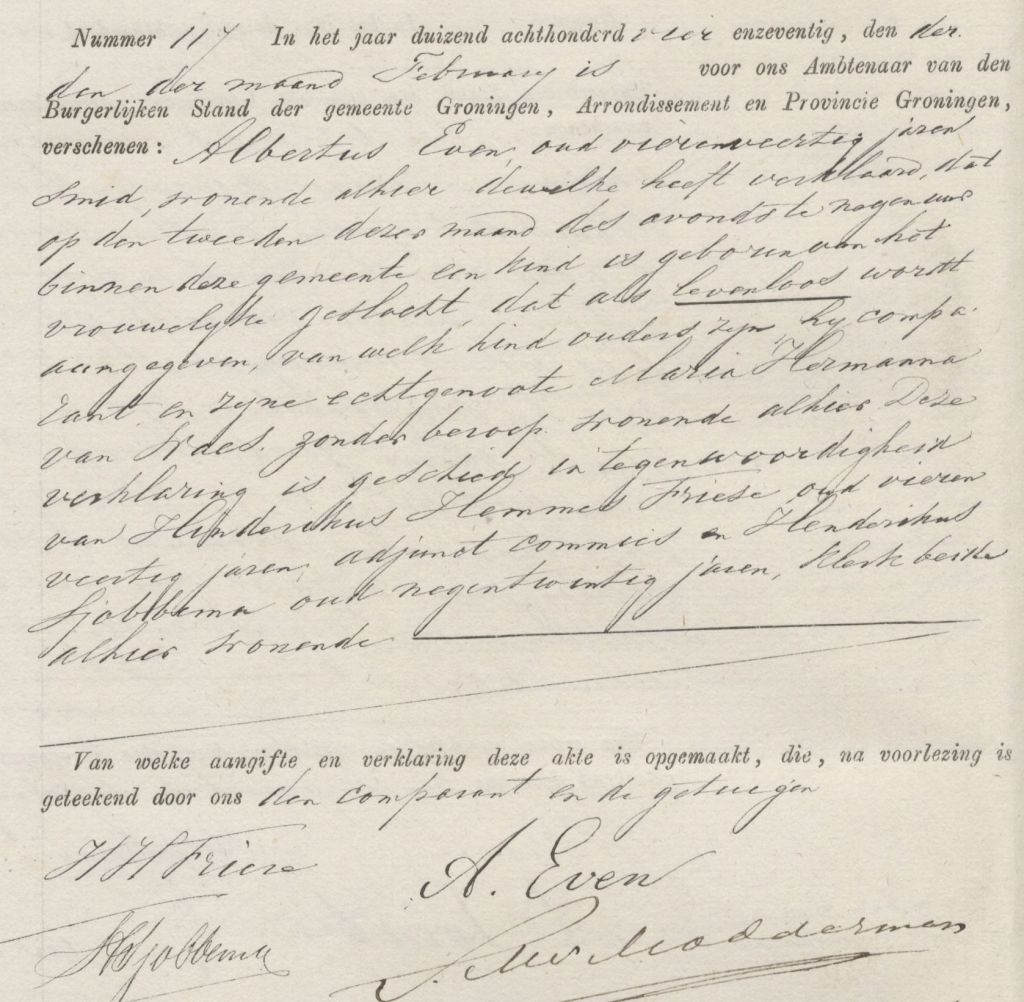 Nummer 117 In het jaar duizend achthonderd vier enzeventig, den der
den der maand February is voor ons Ambtenaar van den
Burgerlijken Stand der gemeente Groningen, Arrondissement en Provincie Groningen,
verschenen: Albertus Even, oud vierenveertig jaren
smid, wonende alhier dewelke heeft verklaard, dat
op den tweeden dezer maand des avonds te negen uur
binnen deze gemeente een kind is geboren van het
vrouwelijke geslacht, dat als levenloos wordt
aangegeven, van welk kind ouders zijn hy compa-
rant en zyne echtgenoote Maria Hermanna
van . zonder beroep. wonende alhier Deze
verklaring is geschied in tegenwoordigheid
van Hinderikus Hemmes Friese oud vieren
veertig jaren, adjunct commies en Henderikus
Sjobbema oud negentwintig jaren, klerk beide
alhier wonende
Van welke aangifte en verklaring deze akte is opgemaakt, die, na voorlezing is
geteekend door ons den comparant en de getuigen
H H Friese
A. Even
HSjobbema
Modderman